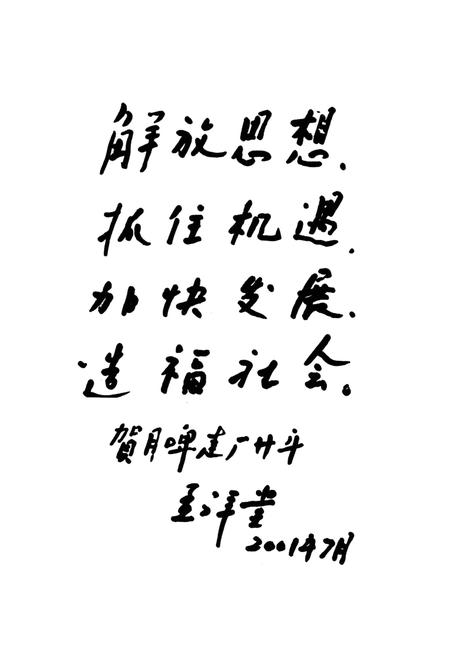 解放思想、
抓住机遇、
加快发展、
造福社会。
賀月啤建厂廿年
2001年7月